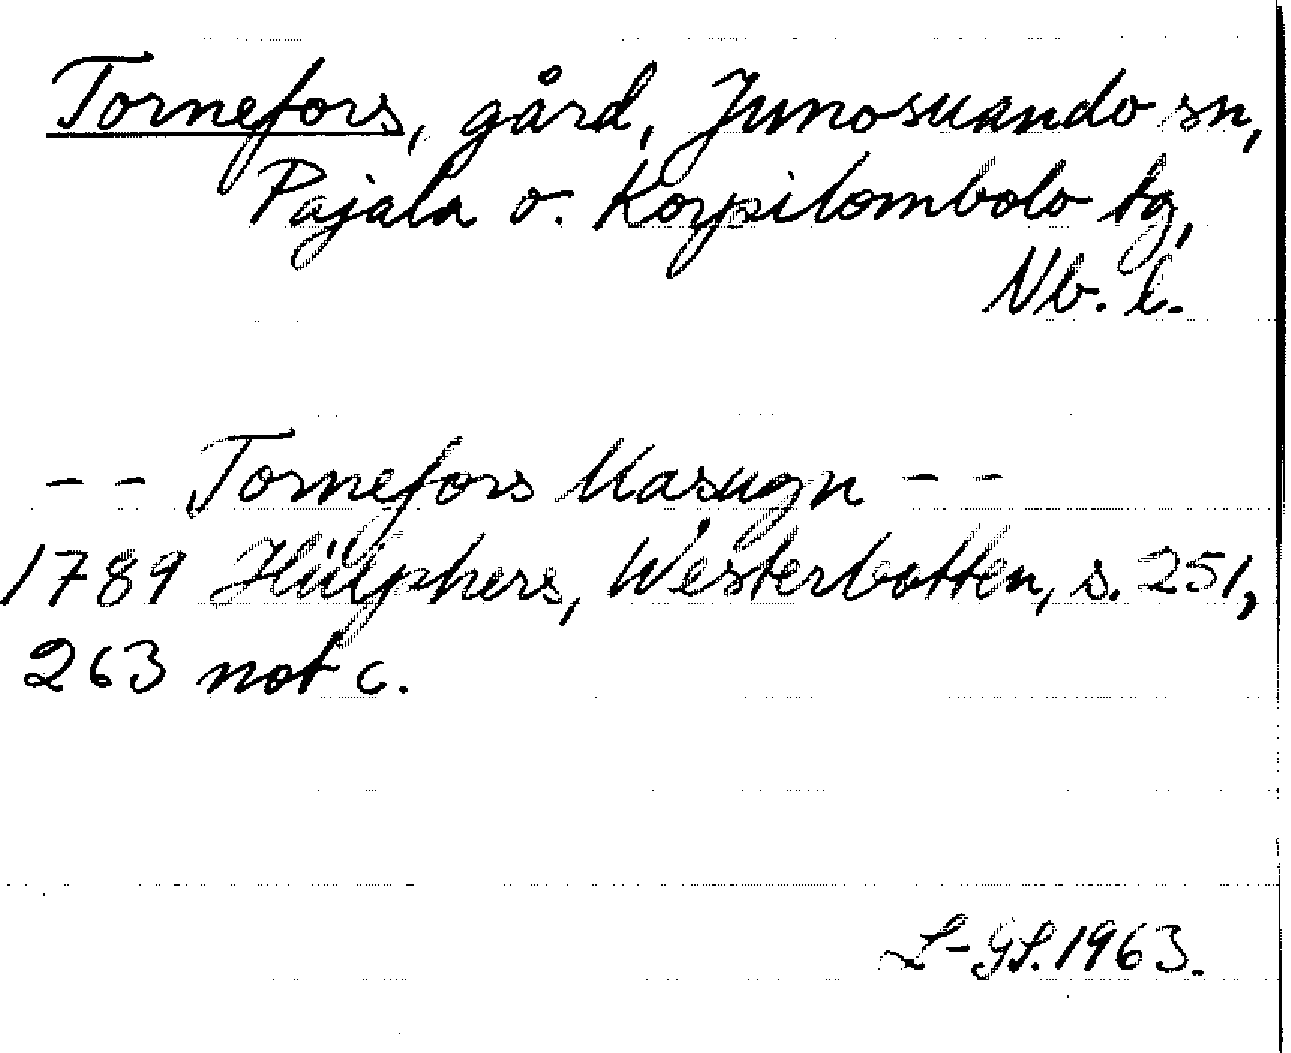 Tornefors, gård, Junosuando sn,
Pajala o. Korpilombolo tg,
Nb. l.
-- Tornefors Masugn --
1789 Hülphers, Westerbotten, s. 251,
263 not c.
L-GS. 1963.